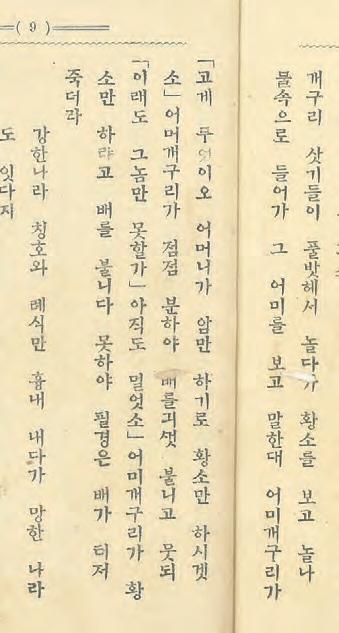 개구리 삿기들이 풀밧헤서 놀다가 황소를 보고 놀나
물속으로 들어가 그 어미를 보고 말한대 어미개구리가
( 9 )
「고게 무엇이오 어머니가 암만 하기로 황소만 하시겟
소」어머개구리가 점점 분하야 배를 불니고 뭇되
「이래도 그놈만 못할가」아직도 멀엇소」어미개구리가 황
소만 하랴고 배를 불니다 못하야 필경은 배가 터저
죽더라
강한나라 칭호와 례식만 흉내 내다가 망한 나라
도 잇다지